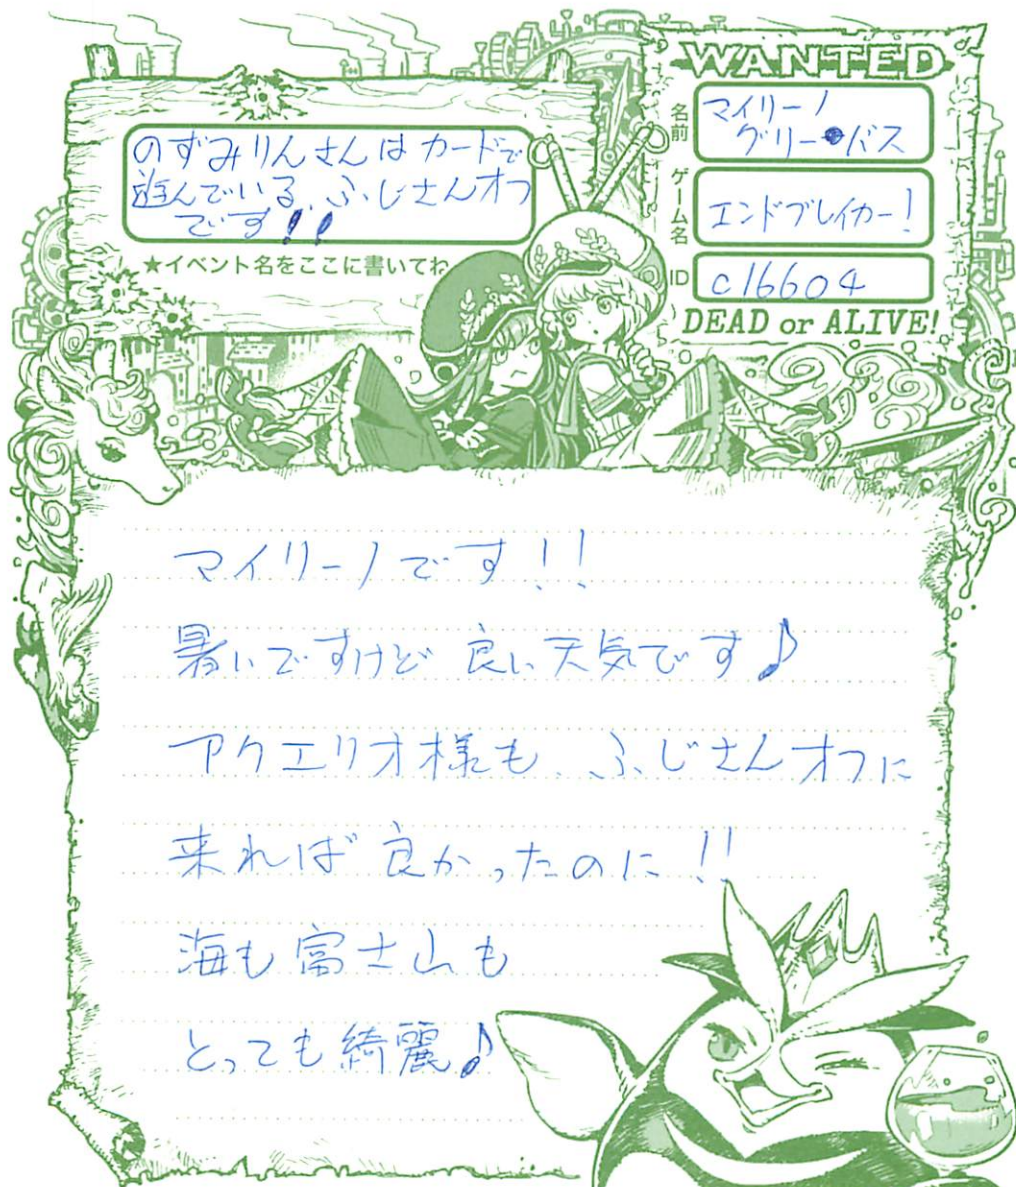 のずみりんさんはカードで
遊んでいる、ふじさんオフ
です!!
★イベント名をここに書いてね
WANTED
名前
マイリーノ
グリー●バス
ゲーム名
エンドブレイカー!
ID
c16604
DEAD or ALIVE!
マイリーノです!!
暑いですけど 良い天気です♪
アクエリオ様も、ふじさんオフに
来れば良かったのに!!
海も富士山も
とっても綺麗♪